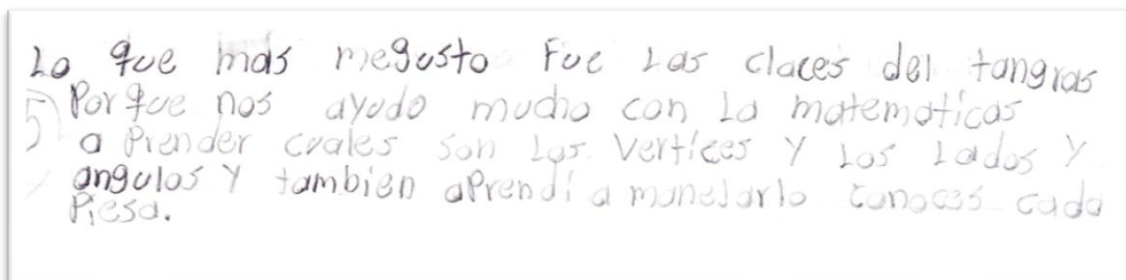 Lo que mas megusto Fue Las claces del tangras
5) Porque nos ayudo mucho con La matematicas
a Prender cuales son Los Vertices y Los Lados y
angulos y tambien aPrendí a manejarlo conoces cada
Piesa.